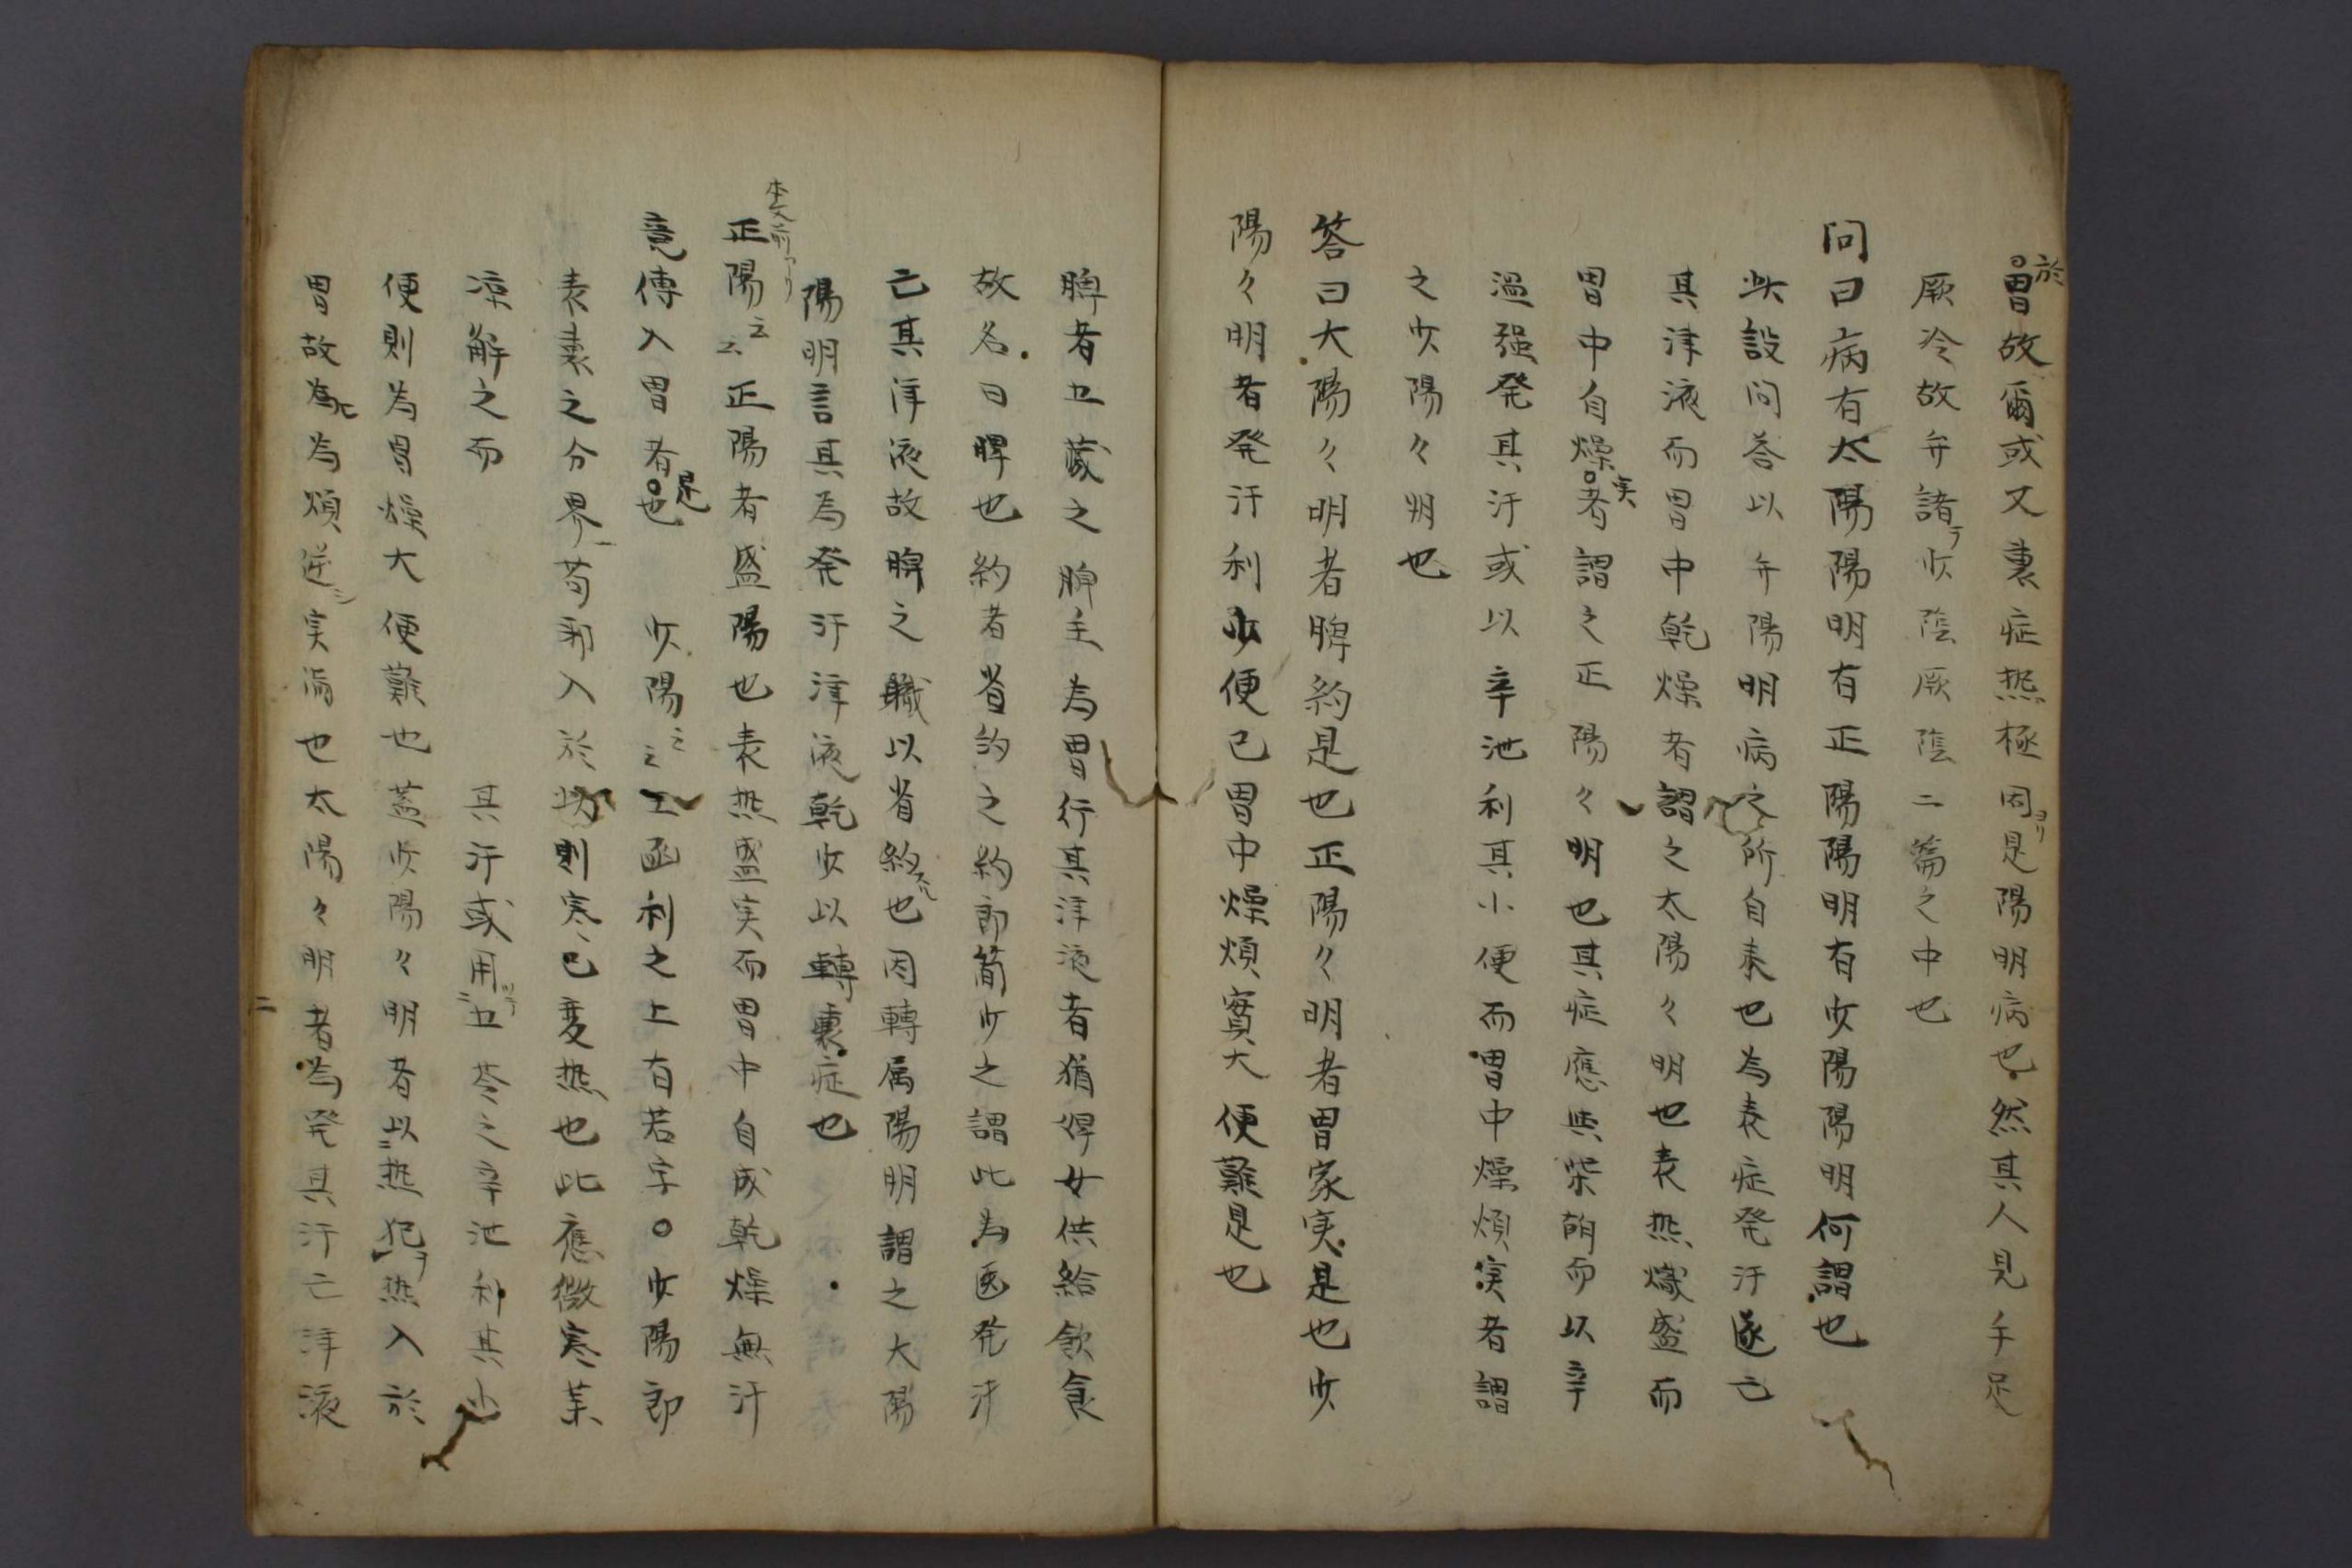 胃故爾或又裏症熱極因是陽明病也然其人見手足
厥冷故弁諸少陰厥陰二篇之中也
问曰病有太陽陽明有正陽陽明有少陽陽明何謂也
此設问答以弁陽明病之所自来也為表症発汗遂亡
其津液而胃中乾燥者謂之太陽々明也表熱熾盛而
胃中自燥実者謂之正陽々明也其症應與柴胡而以辛
温強発其汗或以辛泄利其小便而胃中燥煩実者謂
之少陽々明也
答曰大陽々明者脾約是也正陽々明者胃家実是也少
陽々明者発汗利少便已胃中燥煩實大便難是也
脾者五蔵之脾主為胃行其津液者猶婢女供給飲食
故名曰脾也約者省約之約即簡少之謂此為医発汗
亡其津液故脾之職以省約也因轉属陽明謂之大陽
陽明言其為発汗津液乾少以轉裏症也
本文前ニアリ
正陽云云正陽者盛陽也表熱盛実而胃中自成乾燥無汗
竟傳入胃者是也 少陽云云 利之上有若字○少陽即
表裏之分界苟邪入於此則寒已変熱也此應微寒
涼解之而 其汗或用五苓之辛泄利其小
便則為胃燥大便難也蓋少陽々明者以熱犯熱入於
胃故為為煩逆実満也太陽々明者為発其汗亡津液
二